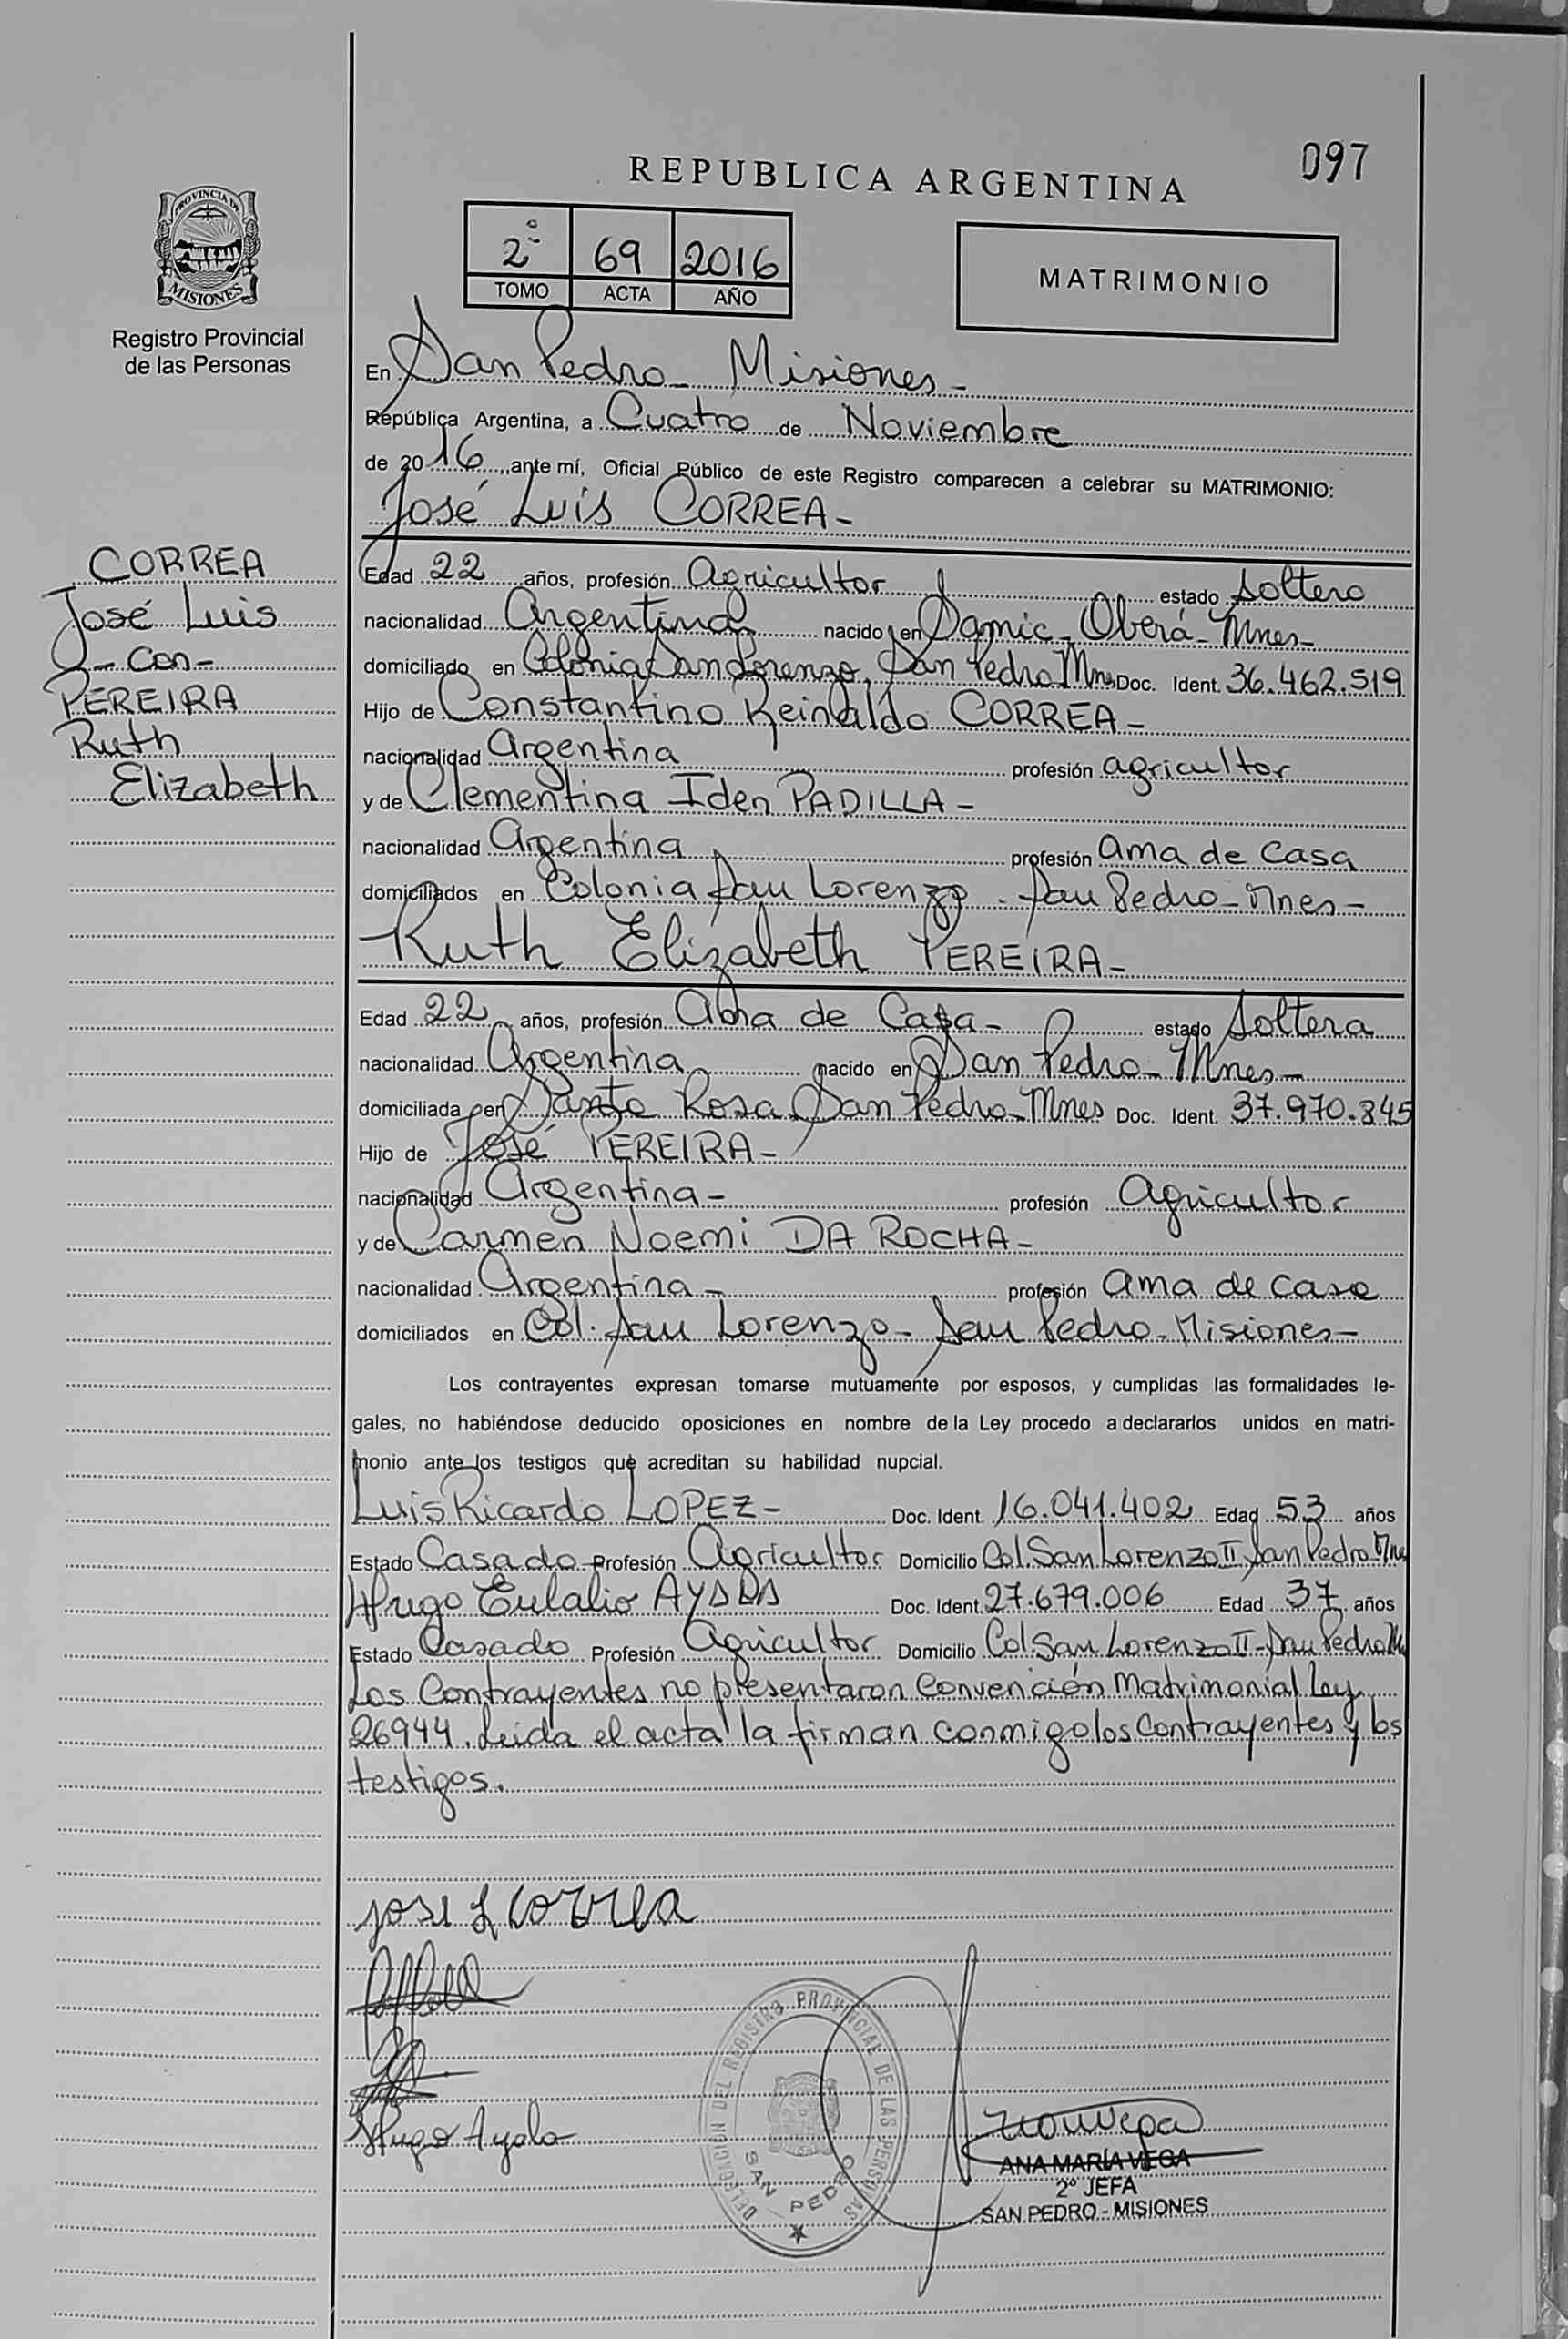 097
REPUBLICA ARGENTINA
PROVINCIA DE
MISIONES
Registro Provincial
de las Personas
2º 69 2016
TOMO ACTA AÑO
MATRIMONIO
En San Pedro - Misiones -
República Argentina, a Cuatro de Noviembre
de 2016, ante mí, Oficial Público de este Registro comparecen a celebrar su MATRIMONIO:
José Luis CORREA -
CORREA
José Luis
- Con -
PEREIRA
Ruth
Elizabeth
Edad 22 años, profesión Agricultor estado Soltero
nacionalidad Argentina nacido en Samic - Oberá - Mnes -
domiciliado en Colonia San Lorenzo, San Pedro Mnes Doc. Ident. 36.462.519
Hijo de Constantino Reinaldo CORREA -
nacionalidad Argentina profesión agricultor
y de Clementina Iden PADILLA -
nacionalidad Argentina profesión Ama de Casa
domiciliados en Colonia San Lorenzo - San Pedro - Mnes -
Ruth Elizabeth PEREIRA -
Edad 22 años, profesión Ama de Casa - estado Soltera
nacionalidad Argentina nacido en San Pedro - Mnes -
domiciliada en Santa Rosa San Pedro - Mnes Doc. Ident. 37.970.845
Hijo de José PEREIRA -
nacionalidad Argentina - profesión Agricultor
y de Carmen Noemi DA ROCHA -
nacionalidad Argentina - profesión Ama de Casa
domiciliados en Col. San Lorenzo - San Pedro - Misiones -
Los contrayentes expresan tomarse mutuamente por esposos, y cumplidas las formalidades le-
gales, no habiéndose deducido oposiciones en nombre de la Ley procedo a declararlos unidos en matri-
monio ante los testigos que acreditan su habilidad nupcial.
Luis Ricardo LOPEZ - Doc. Ident. 16.041.402 Edad 53 años
Estado Casado Profesión Agricultor Domicilio Col. San Lorenzo II, San Pedro Mnes
Hugo Eulalio AYALA Doc. Ident. 27.679.006 Edad 37 años
Estado Casado Profesión Agricultor Domicilio Col San Lorenzo II - San Pedro M
Los Contrayentes no presentaron Convención Matrimonial Ley
26944. Leida el acta la firman conmigo los Contrayentes y los
testigos.
Jose L Correa
Hugo Ayala
DELEGACION DEL REGISTRO PROVINCIAL DE LAS PERSONAS
SAN PEDRO
ANA MARÍA VEGA
2º JEFA
SAN PEDRO - MISIONES